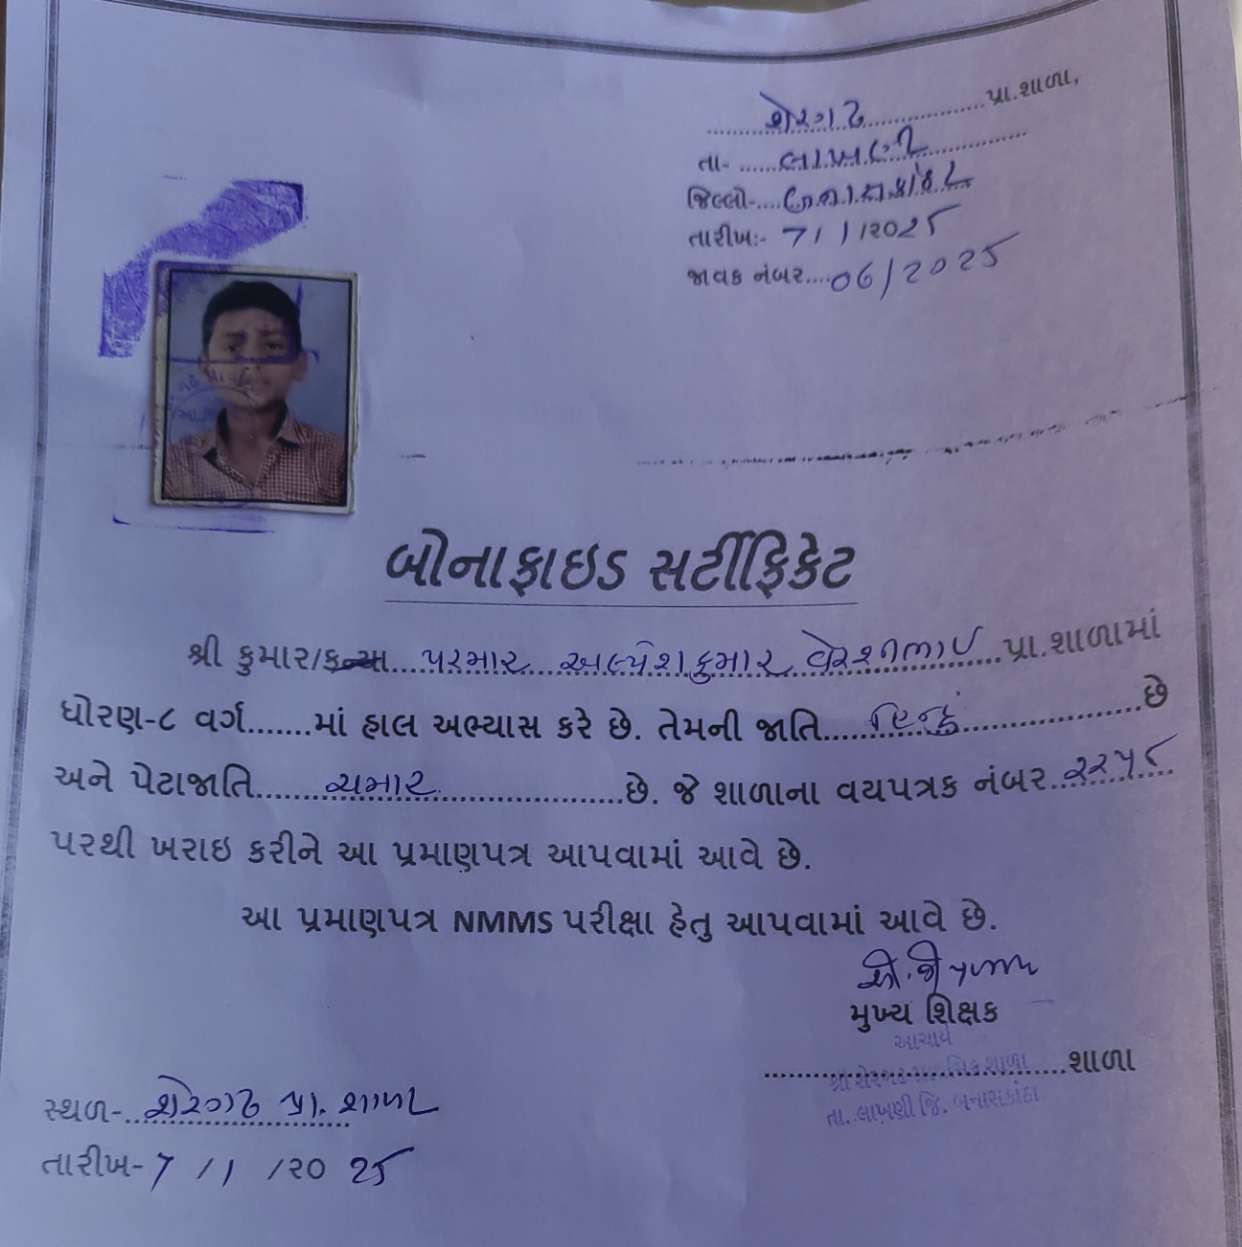 શેરગઢ પ્રા.શાળા,
તા- લાખણી
જિલ્લો- બનાસકાંઠા
તારીખ:- 7/1/૨૦25
જાવક નંબર 06/2025
બોનાફાઇડ સર્ટીફિકેટ
શ્રી કુમાર/કન્યા પરમાર અલ્પેશકુમાર પ્રા.શાળામાં
ધોરણ-૮ વર્ગ.......માં હાલ અભ્યાસ કરે છે. તેમની જાતિ હિન્દુ છે
અને પેટાજાતિ ચમાર છે. જે શાળાના વયપત્રક નંબર ૨૨૫૮
પરથી ખરાઇ કરીને આ પ્રમાણપત્ર આપવામાં આવે છે.
આ પ્રમાણપત્ર NMMS પરીક્ષા હેતુ આપવામાં આવે છે.
મુખ્ય શિક્ષક
આચાર્ય
શાળા
શ્રી શેરગઢ પ્રાથમિક શાળા
તા. લાખણી જિ. બનાસકાંઠા
સ્થળ- શેરગઢ પ્રા. શાળા
તારીખ- 7/1/૨૦25